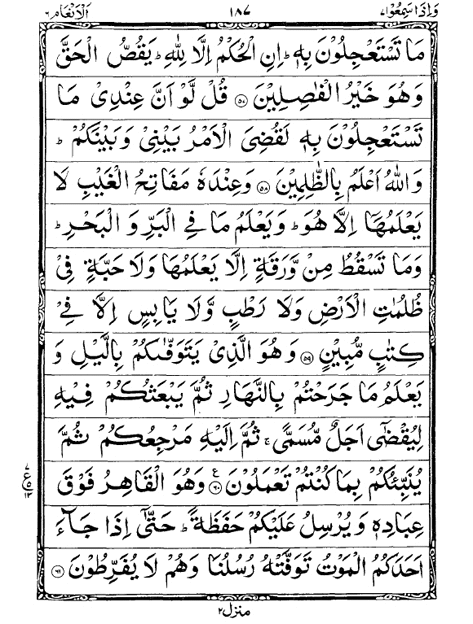 وَاِذَا سَمِعُوْا ٧ ١٨٧ اَلْاَنْعَام ٦
مَا تَسْتَعْجِلُوْنَ بِهٖ ؕ اِنِ الْحُكْمُ اِلَّا لِلّٰهِ ؕ يَقُصُّ الْحَقَّ
وَهُوَ خَيْرُ الْفٰصِلِيْنَ ﴿۵۷﴾ قُلْ لَّوْ اَنَّ عِنْدِىْ مَا
تَسْتَعْجِلُوْنَ بِهٖ لَقُضِىَ الْاَمْرُ بَيْنِىْ وَبَيْنَكُمْ ؕ
وَاللّٰهُ اَعْلَمُ بِالظّٰلِمِيْنَ ﴿۵۸﴾ وَعِنْدَهٗ مَفَاتِحُ الْغَيْبِ لَا
يَعْلَمُهَاۤ اِلَّا هُوَ ؕ وَيَعْلَمُ مَا فِى الْبَرِّ وَ الْبَحْرِ ؕ
وَمَا تَسْقُطُ مِنْ وَّرَقَةٍ اِلَّا يَعْلَمُهَا وَلَا حَبَّةٍ فِىْ
ظُلُمٰتِ الْاَرْضِ وَلَا رَطْبٍ وَّلَا يَابِسٍ اِلَّا فِىْ
كِتٰبٍ مُّبِيْنٍ ﴿۵۹﴾ وَ هُوَ الَّذِىْ يَتَوَفّٰٮكُمْ بِالَّيْلِ وَ
يَعْلَمُ مَا جَرَحْتُمْ بِالنَّهَارِ ثُمَّ يَبْعَثُكُمْ فِيْهِ
لِيُقْضٰٓى اَجَلٌ مُّسَمًّى ۚ ثُمَّ اِلَيْهِ مَرْجِعُكُمْ ثُمَّ
يُنَبِّئُكُمْ بِمَا كُنْتُمْ تَعْمَلُوْنَ ﴿۶۰﴾ وَهُوَ الْقَاهِرُ فَوْقَ
عِبَادِهٖ وَ يُرْسِلُ عَلَيْكُمْ حَفَظَةً ؕ حَتّٰٓى اِذَا جَآءَ
اَحَدَكُمُ الْمَوْتُ تَوَفَّتْهُ رُسُلُنَا وَهُمْ لَا يُفَرِّطُوْنَ ﴿۶۱﴾
منزل ٢